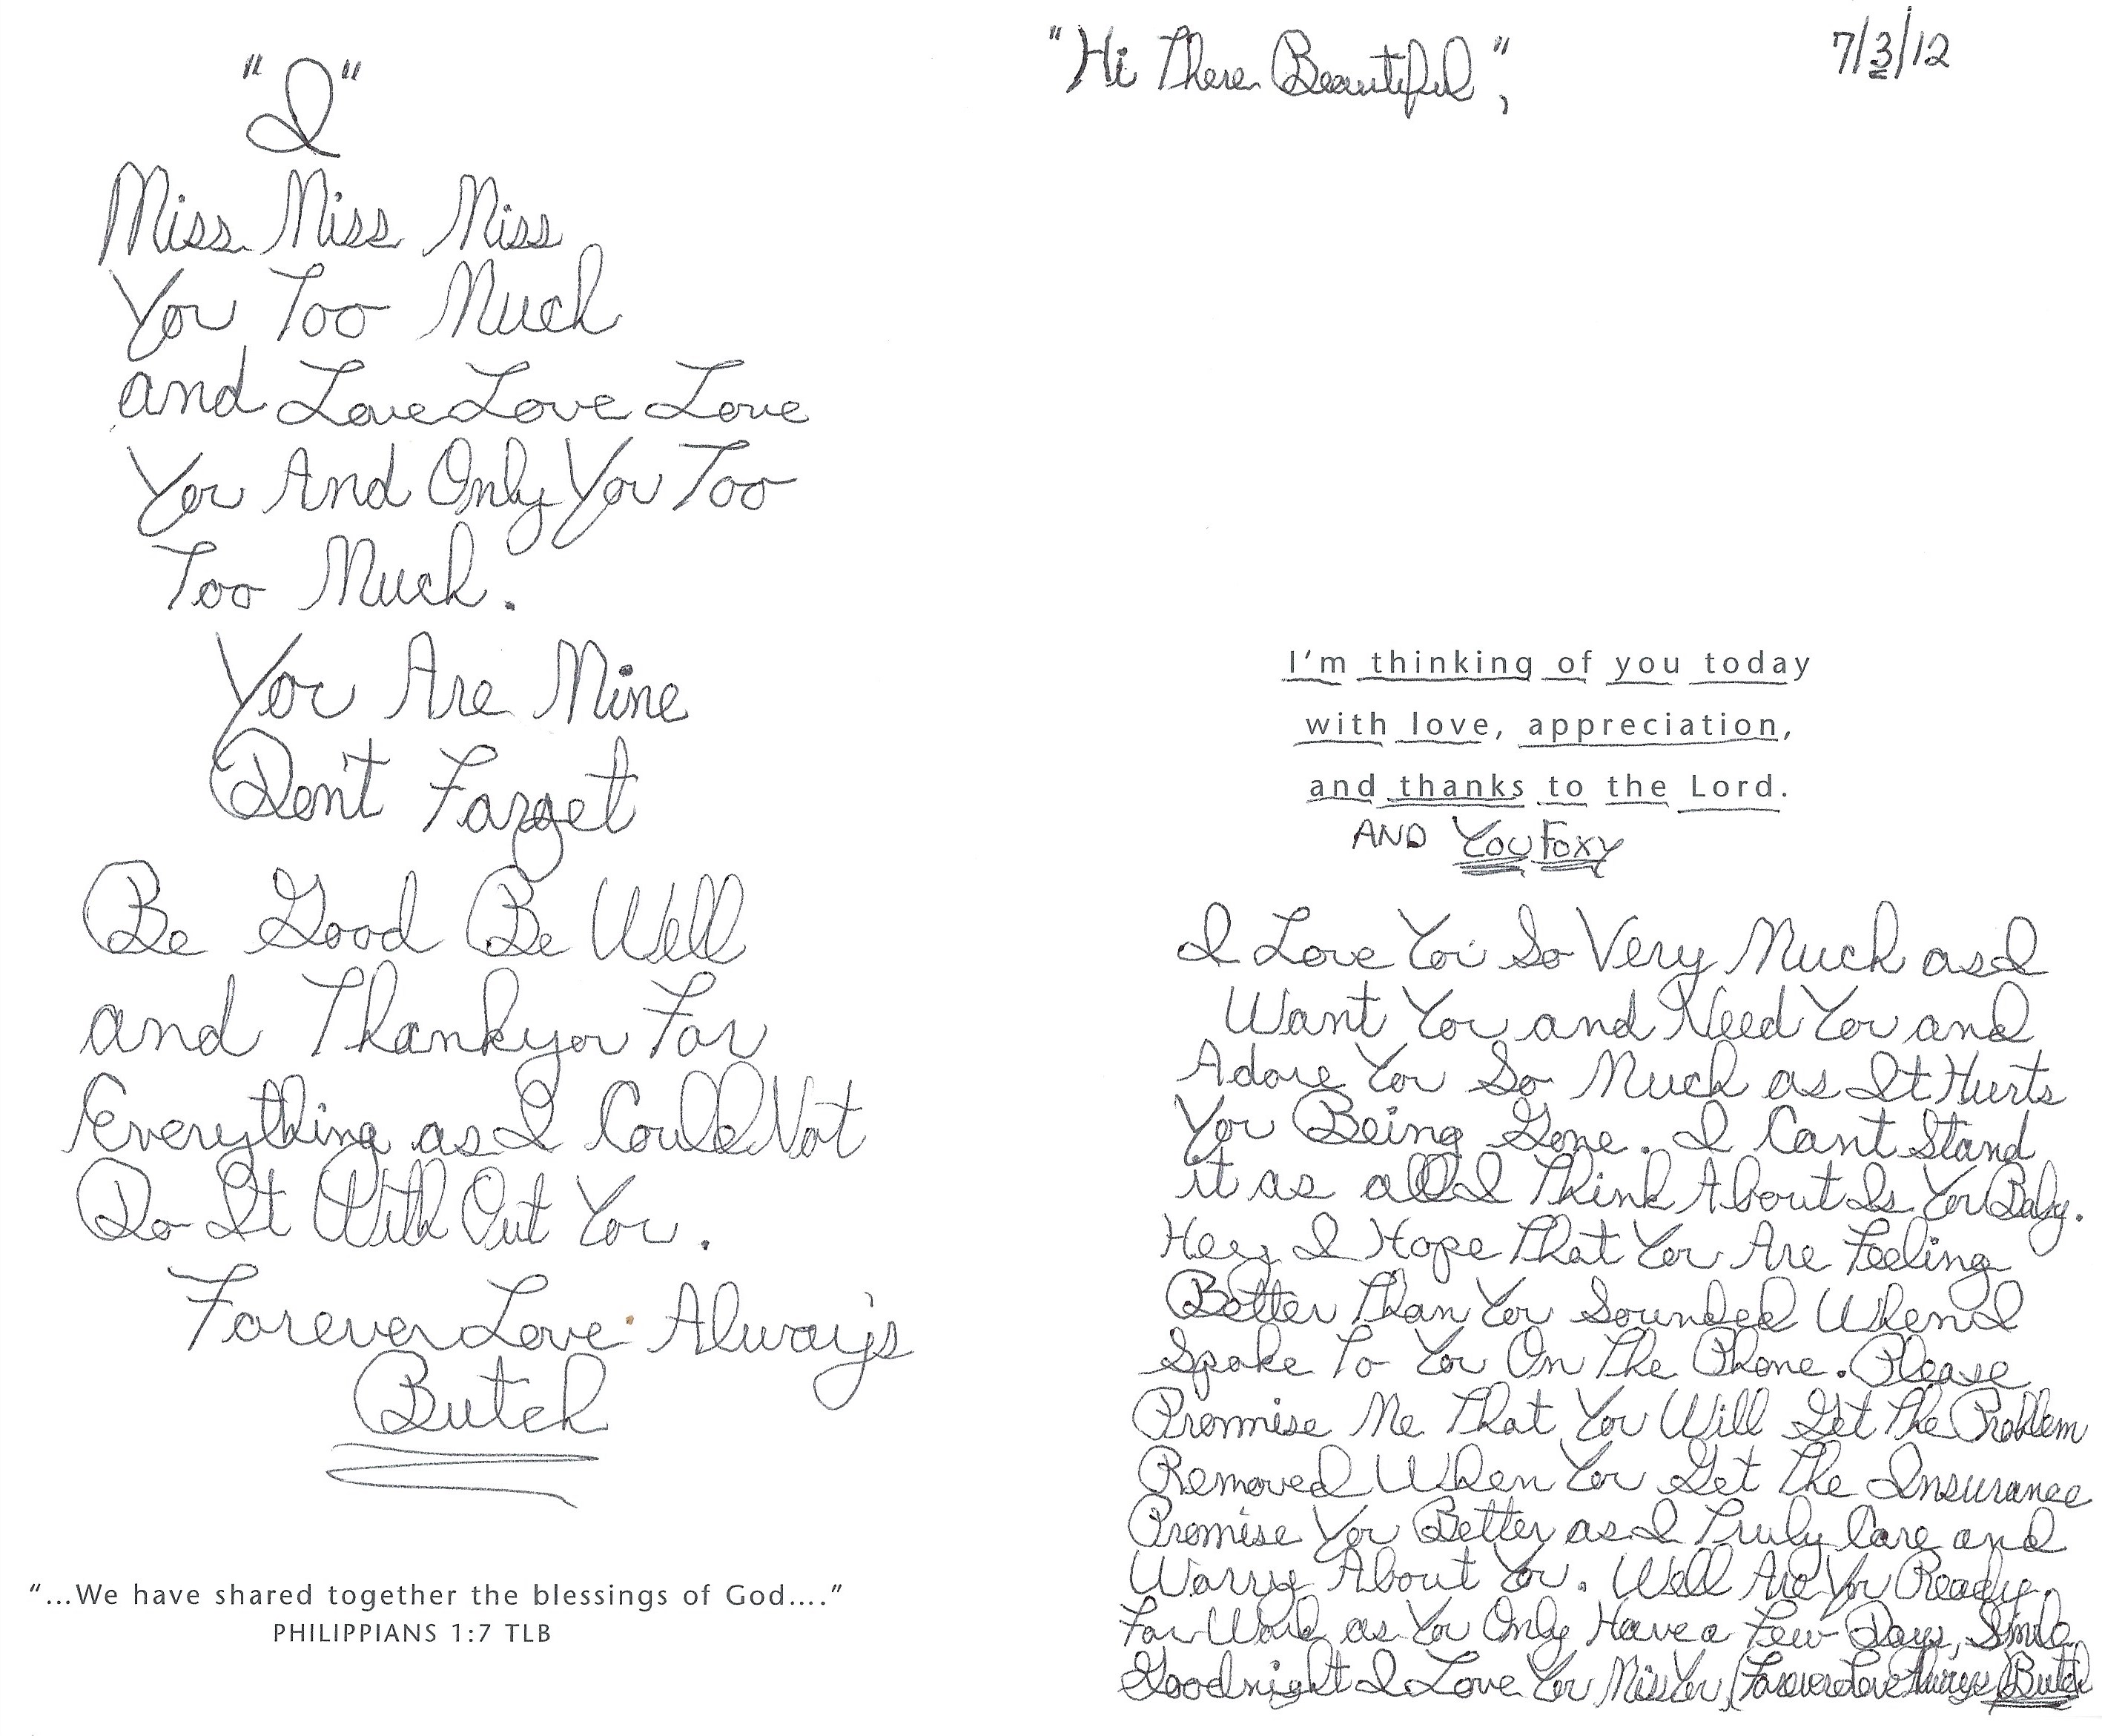 "I"
Miss Miss Miss
You Too Much
and Love Love Love
You And Only You Too
Too Much.
You Are Mine
Don't Forget
Be Good Be Well
and Thankyou For
Everything as I Could Not
Do It With Out You.
Forever Love Always
Butch
"...We have shared together the blessings of God...."
PHILIPPIANS 1:7 TLB
"Hi There Beautiful",
7/3/12
I'm thinking of you today
with love, appreciation,
and thanks to the Lord.
AND You Foxy
I Love You So Very Much as I
Want You and Need You and
Adore You So Much as It Hurts
You Being Gone. I Cant Stand
it as all I Think About Is You Baby.
Hey I Hope That You Are Feeling
Better Than You Sounded When I
Spoke To You On The Phone. Please
Promise Me That You Will Get The Problem
Removed When You Get The Insurance
Promise You Better as I Truly Care and
Worry About You. Well Are You Ready
For Work as You Only Have a Few Days, Smile
Goodnight I Love You Miss You, Forever Love Always Butch